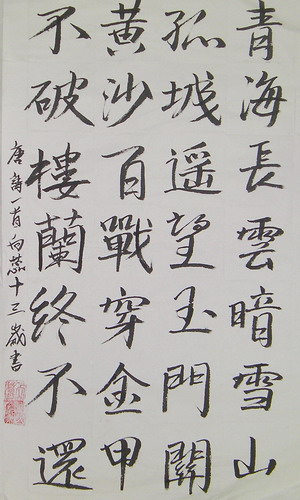 青海長雲暗雪山
孤城遥望玉門關
黃沙百戰穿金甲
不破樓蘭終不還
唐詩一首向蕊十三歲書